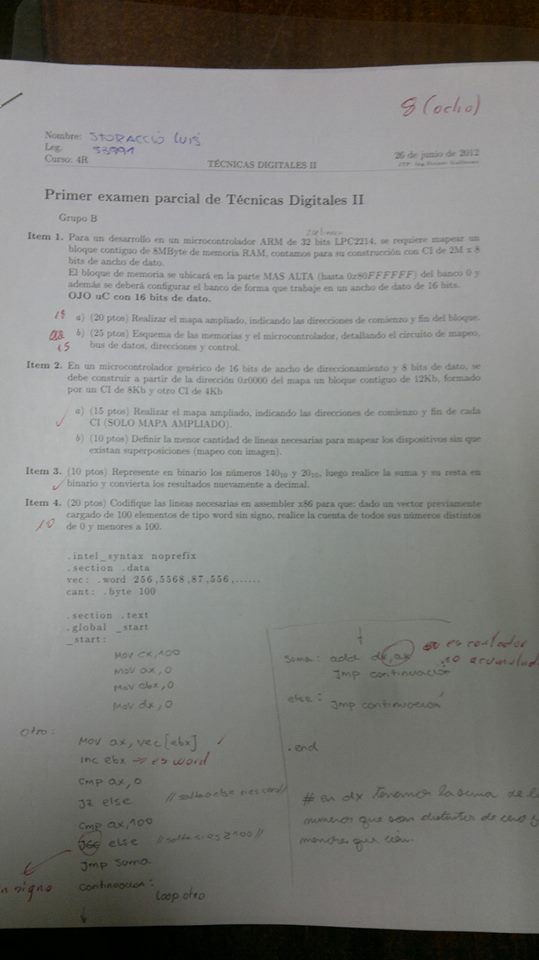 8 (ocho)
Nombre: STORACCIO LUIS
Leg.
Curso: 4R
TÉCNICAS DIGITALES II
26 de junio de 2012
Primer examen parcial de Técnicas Digitales II
Grupo B
Item 1. Para un desarrollo en un microcontrolador ARM de 32 bits LPC2214, se requiere mapear un
bloque contiguo de 8MByte de memoria RAM, contamos para su construcción con CI de 2M x 8
bits de ancho de dato.
El bloque de memoria se ubicará en la parte MAS ALTA (hasta 0x80FFFFFF) del banco 0 y
además se deberá configurar el banco de forma que trabaje en un ancho de dato de 16 bits.
OJO uC con 16 bits de dato.
a) (20 ptos) Realizar el mapa ampliado, indicando las direcciones de comienzo y fin del bloque.
b) (25 ptos) Esquema de las memorias y el microcontrolador, detallando el circuito de mapeo,
15 bus de datos, direcciones y control.
Item 2. En un microcontrolador genérico de 16 bits de ancho de direccionamiento y 8 bits de dato, se
debe construir a partir de la dirección 0x0000 del mapa un bloque contiguo de 12Kb, formado
por un CI de 8Kb y otro CI de 4Kb
a) (15 ptos) Realizar el mapa ampliado, indicando las direcciones de comienzo y fin de cada
CI (SOLO MAPA AMPLIADO).
b) (10 ptos) Definir la menor cantidad de lineas necesarias para mapear los dispositivos sin que
existan superposiciones (mapeo con imagen).
Item 3. (10 ptos) Represente en binario los números 140₁₀ y 20₁₀, luego realice la suma y su resta en
binario y convierta los resultados nuevamente a decimal.
Item 4. (20 ptos) Codifique las lineas necesarias en assembler x86 para que: dado un vector previamente
cargado de 100 elementos de tipo word sin signo, realice la cuenta de todos sus números distintos
10 de 0 y menores a 100.
.intel_syntax noprefix
.section .data
vec: .word 256,5568,87,556,......
cant: .byte 100
.section .text
.global _start
_start:
Mov cx,100
Mov ax,0
Mov ebx,0
Mov dx,0
otro:
Mov ax, vec[ebx]
inc ebx → es word
cmp ax,0
jz else
cmp ax,100
else //salta si es ≥100//
jmp suma
signo
continuacion:
loop otro
suma: add dx,ax es contador
no acumulad
jmp continuación
else: jmp continuación
.end
# en dx tenemos la suma de l
numeros que son distintos de cero y
menores que cien.